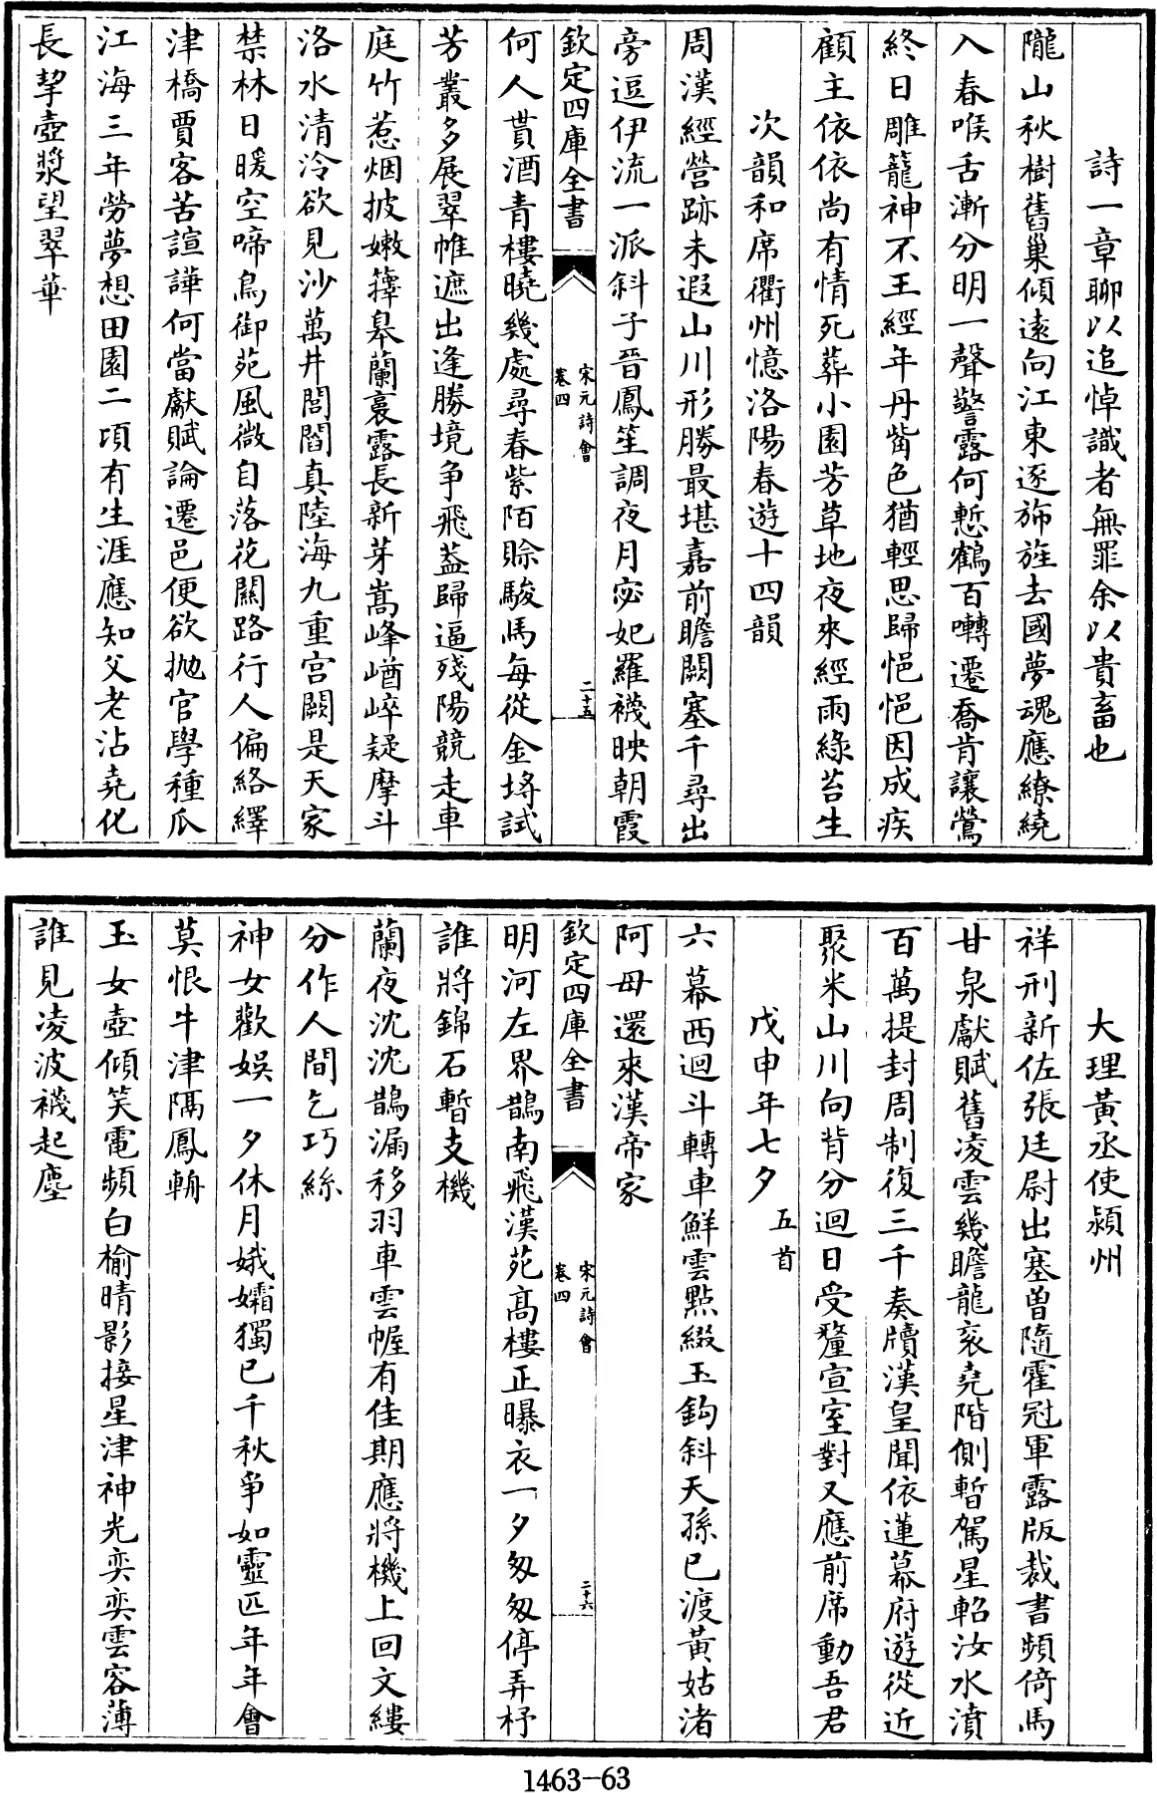 詩一章聊以追悼識者無罪余以貴畜也
隴山秋樹舊巢傾遠向江東逐斾旌去國夢魂應繚繞
入春喉舌漸分明一聲警露何慙鶴百囀遷喬肯讓鶯
終日雕籠神不王經年丹觜色猶輕思歸悒悒因成疾
顧主依依尚有情死葬小園芳草地夜來經雨綠苔生
次韻和席衢州憶洛陽春遊十四韻
周漢經營跡未遐山川形勝最堪嘉前瞻闕塞千尋出
旁逗伊流一派斜子晉鳳笙調夜月宓妃羅襪映朝霞
欽定四庫全書
宋元詩會
卷四
二十五
何人貰酒青樓曉幾處尋春紫陌賒駿馬每從金埒試
芳叢多展翠帷遮出逢勝境争飛葢歸逼殘陽競走車
庭竹惹烟披嫩籜皋蘭裛露長新芽嵩峰崷崒疑摩斗
洛水清泠欲見沙萬井閭閻真陸海九重宫闕是天家
禁林日暖空啼鳥御苑風微自落花闗路行人偏絡繹
津橋賈客苦諠譁何當獻賦論遷邑便欲抛官學種瓜
江海三年勞夢想田園二頃有生涯應知父老沾堯化
長挈壺漿望翠華
大理黃丞使潁州
祥刑新佐張廷尉出塞曽隨霍冠軍露版裁書頻倚馬
甘泉獻賦舊凌雲幾瞻龍衮堯階側暫駕星軺汝水濆
百萬提封周制復三千奏牘漢皇聞依蓮幕府遊從近
聚米山川向背分迴日受釐宣室對又應前席動吾君
戊申年七夕 五首
六幕西迴斗轉車鮮雲點綴玉鈎斜天孫已渡黃姑渚
阿母還來漢帝家
欽定四庫全書
宋元詩會
卷四
二十六
明河左界鵲南飛漢苑髙樓正曝衣一夕匆匆停弄杼
誰將錦石暫支機
蘭夜沈沈鵲漏移羽車雲幄有佳期應將機上回文縷
分作人間乞巧絲
神女歡娱一夕休月娥孀獨已千秋争如靈匹年年會
莫恨牛津隔鳳輈
玉女壺傾笑電頻白榆晴影接星津神光奕奕雲容薄
誰見凌波襪起塵
1463-63